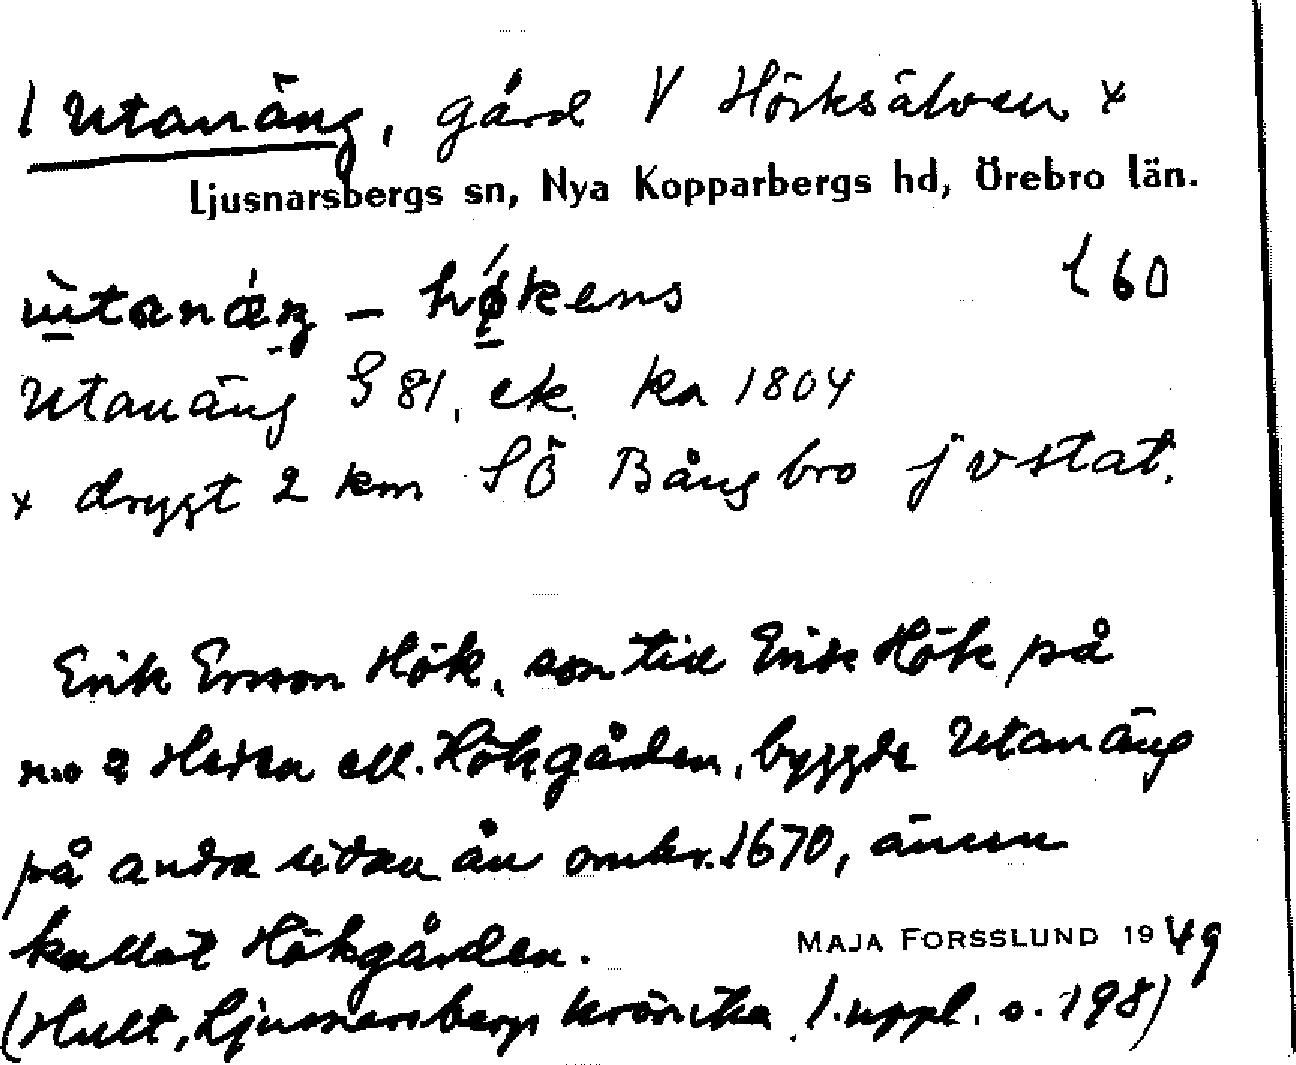 1 Utanäng, gård V Hörksälven x
Ljusnarsbergs sn, Nya Kopparbergs hd, Örebro län.
ùtanáŋ – hǿkens l 60
Utanäng G 81, ek. ka 1804
x drygt 2 km SÖ Bångbro jvstat.
Erik Ersson Hök, son till Erik Hök på
n:o 2 ell. Hökgården, byggde Utanäng
på andra sidan ån omkr. 1670, även
kallat Hökgården.
MAJA FORSSLUND 1949
(Hult, Ljusnarsbergs krönika, 1. uppl. s. 198)